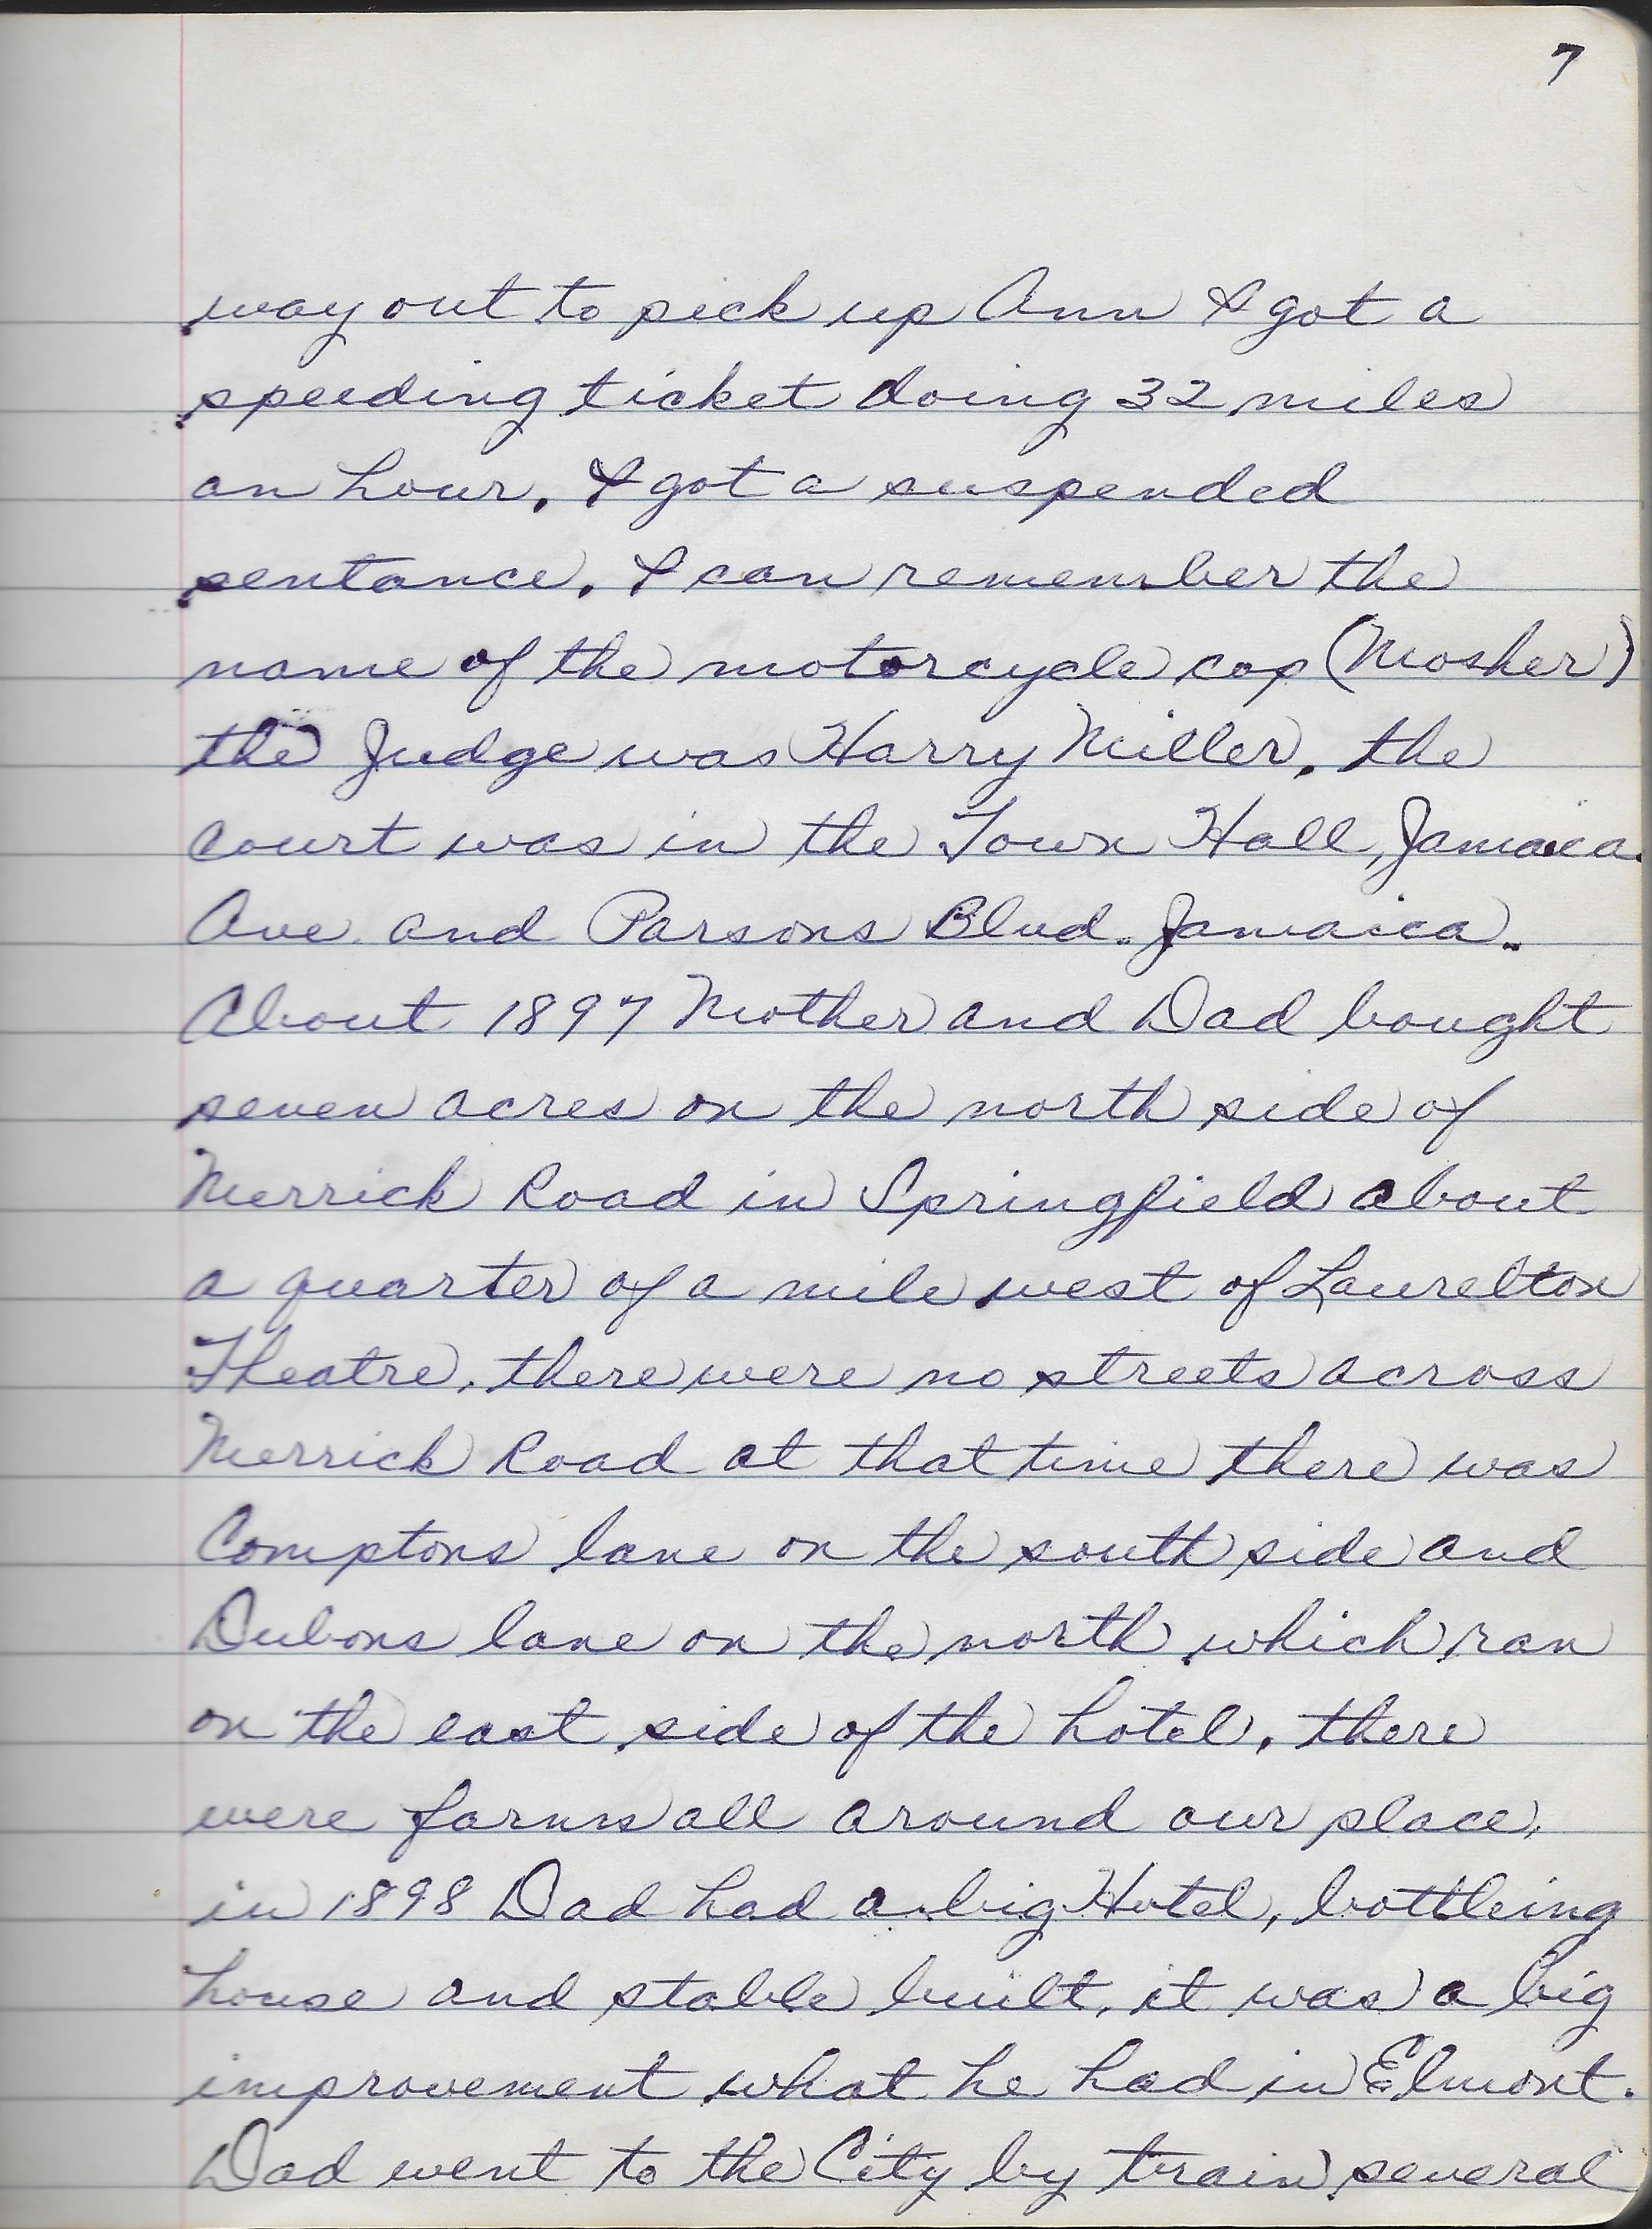 7
way out to pick up Ann I got a
speeding ticket doing 32 miles
an hour. I got a suspended
sentance. I can remember the
name of the motorcycle cop (Mosher)
the Judge was Harry Miller, the
court was in the Town Hall, Jamaica
Ave. and Parsons Blvd. Jamaica.
About 1897 Mother and Dad bought
seven acres on the north side of
Merrick Road in Springfield about
a quarter of a mile west of Laurelton
Theatre, there were no streets across
Merrick Road at that time there was
Comptons lane on the south side and
Dubons lane on the north which ran
on the east side of the hotel, there
were farms all around our place,
in 1898 Dad had a big Hotel, bottleing
house and stable built, it was a big
improvement what he had in Elmont.
Dad went to the City by train several